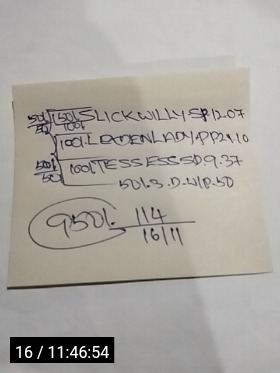 50/. 150/. SLICKWILLY SP 12.07
50 100/.
100/. LADENLADY PP 2.10
50/. 100/. TESSESSSD 9.37
50
50/. S.D.W/P.50
950/. 114
16/11
16 / 11:46:54